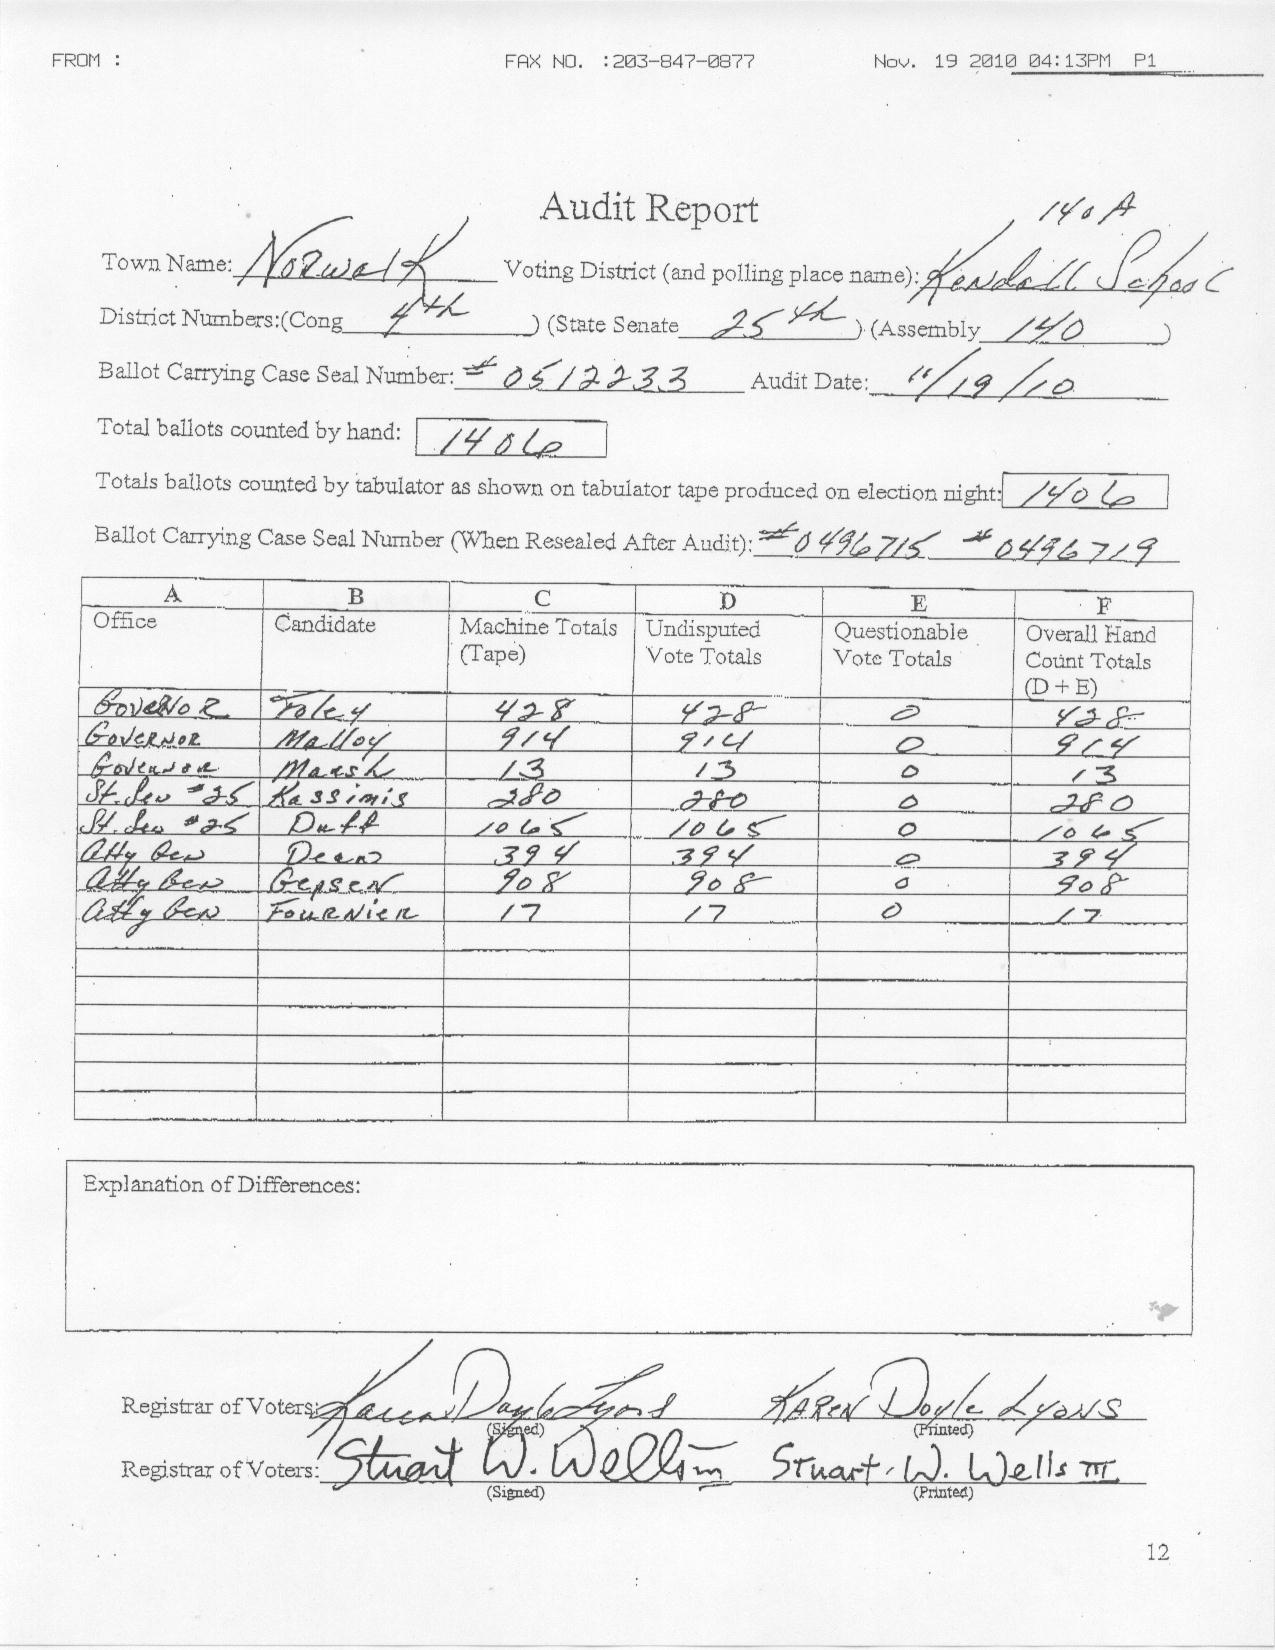 FROM : FAX NO. :203-847-0877 Nov. 19 2010 04:13PM P1
Audit Report 140 A
Town Name: Norwalk Voting District (and polling place name): Kendall School
District Numbers:(Cong 4th ) (State Senate 25th ) (Assembly 140 )
Ballot Carrying Case Seal Number: # 0512233 Audit Date: 11/19/10
Total ballots counted by hand: 1406
Totals ballots counted by tabulator as shown on tabulator tape produced on election night: 1406
Ballot Carrying Case Seal Number (When Resealed After Audit): #0496715 #0496719
A B C D E F
Office Candidate Machine Totals Undisputed Questionable Overall Hand
(Tape) Vote Totals Vote Totals Count Totals
(D + E)
Governor Foley 428 428 0 428
Governor Malloy 914 914 0 914
Governor Marsh 13 13 0 13
St. Sen #25 Kassimis 280 280 0 280
St. Sen #25 Duff 1065 1065 0 1065
Atty Gen Dean 394 394 0 394
Atty Gen Gepsen 908 908 0 908
Atty Gen Fournier 17 17 0 17
Explanation of Differences:
Registrar of Voters: Karen Doyle Lyons KAREN Doyle Lyons
(Signed) (Printed)
Registrar of Voters: Stuart W. Wells III Stuart W. Wells III
(Signed) (Printed)
12